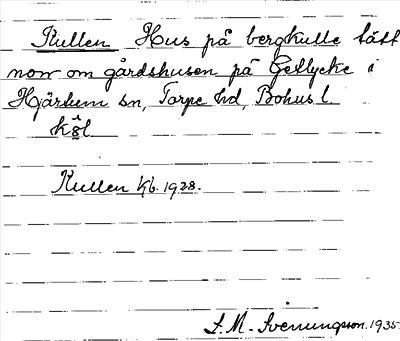 Kullen Hus på bergkulle tätt
norr om gårdshusen på Getlycke i
Hjärtum sn, Torpe hd, Bohus l.
Kullen Kb. 1928.
S. M. Svenungsson. 1935.